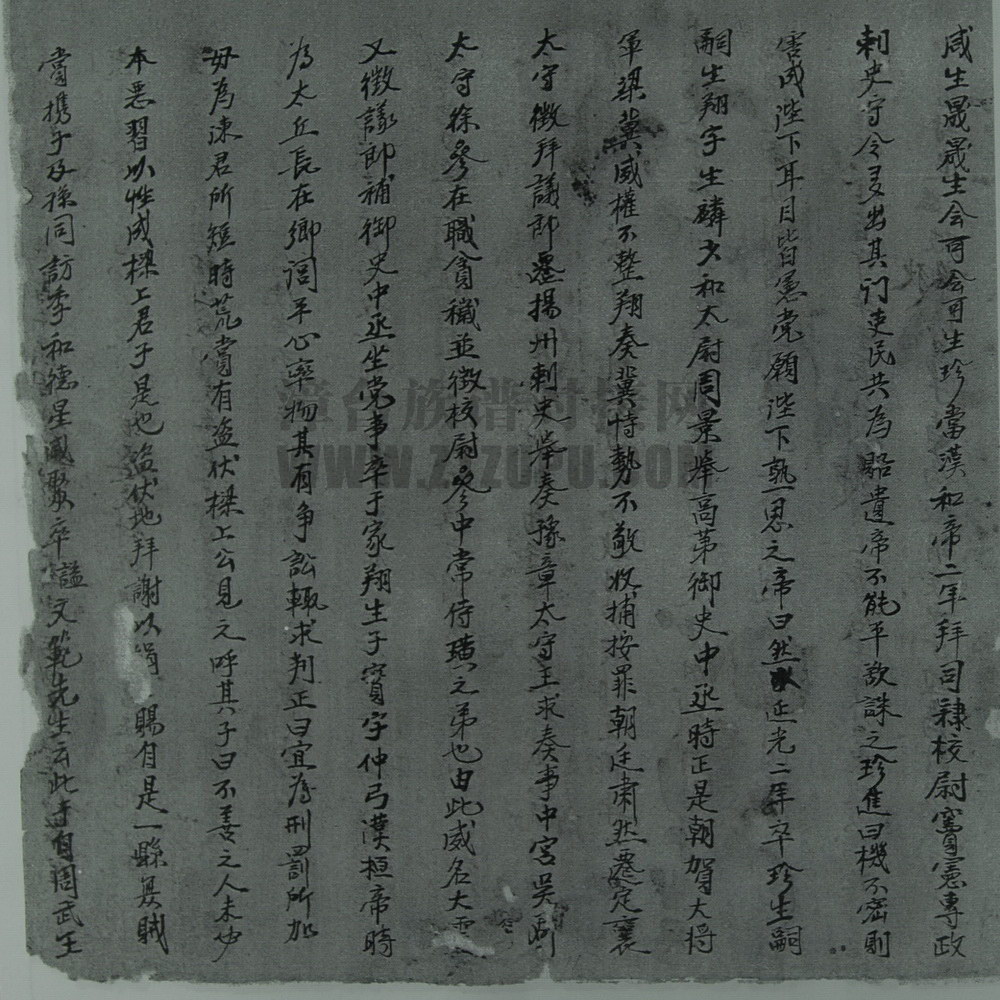 咸生晟晟生会可会可生珍當漢和帝二年拜司隸校尉竇憲專政
刺史守令多出其门吏民共为賂遺帝不能平欲誅之珍進曰機不密則
害成陛下耳目皆憲党願陛下執一思之帝曰然延光二年卒珍生嗣
嗣生翔字生麟少和太尉周景舉高第御史中丞時正是朝賀大将
軍梁冀威權不整翔奏冀恃勢不敬收捕按罪朝廷肅然遷定襄
太守徴拜議郎遷揚州刺史舉奏豫章太守王求奏事中宫吴郡
太守徐參在職貪穢並徴校尉參中常侍璜之弟也由此威名大震
又徴議郎補御史中丞坐党事卒于家翔生子寔字仲弓漢桓帝時
為太丘長在鄉闾平心率物其有争訟輒求判正曰宜為刑罰所加
毋為陳君所短時荒嘗有盗伏樑上公見之呼其子曰不善之人未必
本惡習以性成樑上君子是也盗伏地拜謝以絹賜自是一縣無賊
嘗携子及孫同訪季和德星遂聚卒諡文範先生云此寺自周武王
漳台族谱对接网
WWW.ZTZUPU.COM